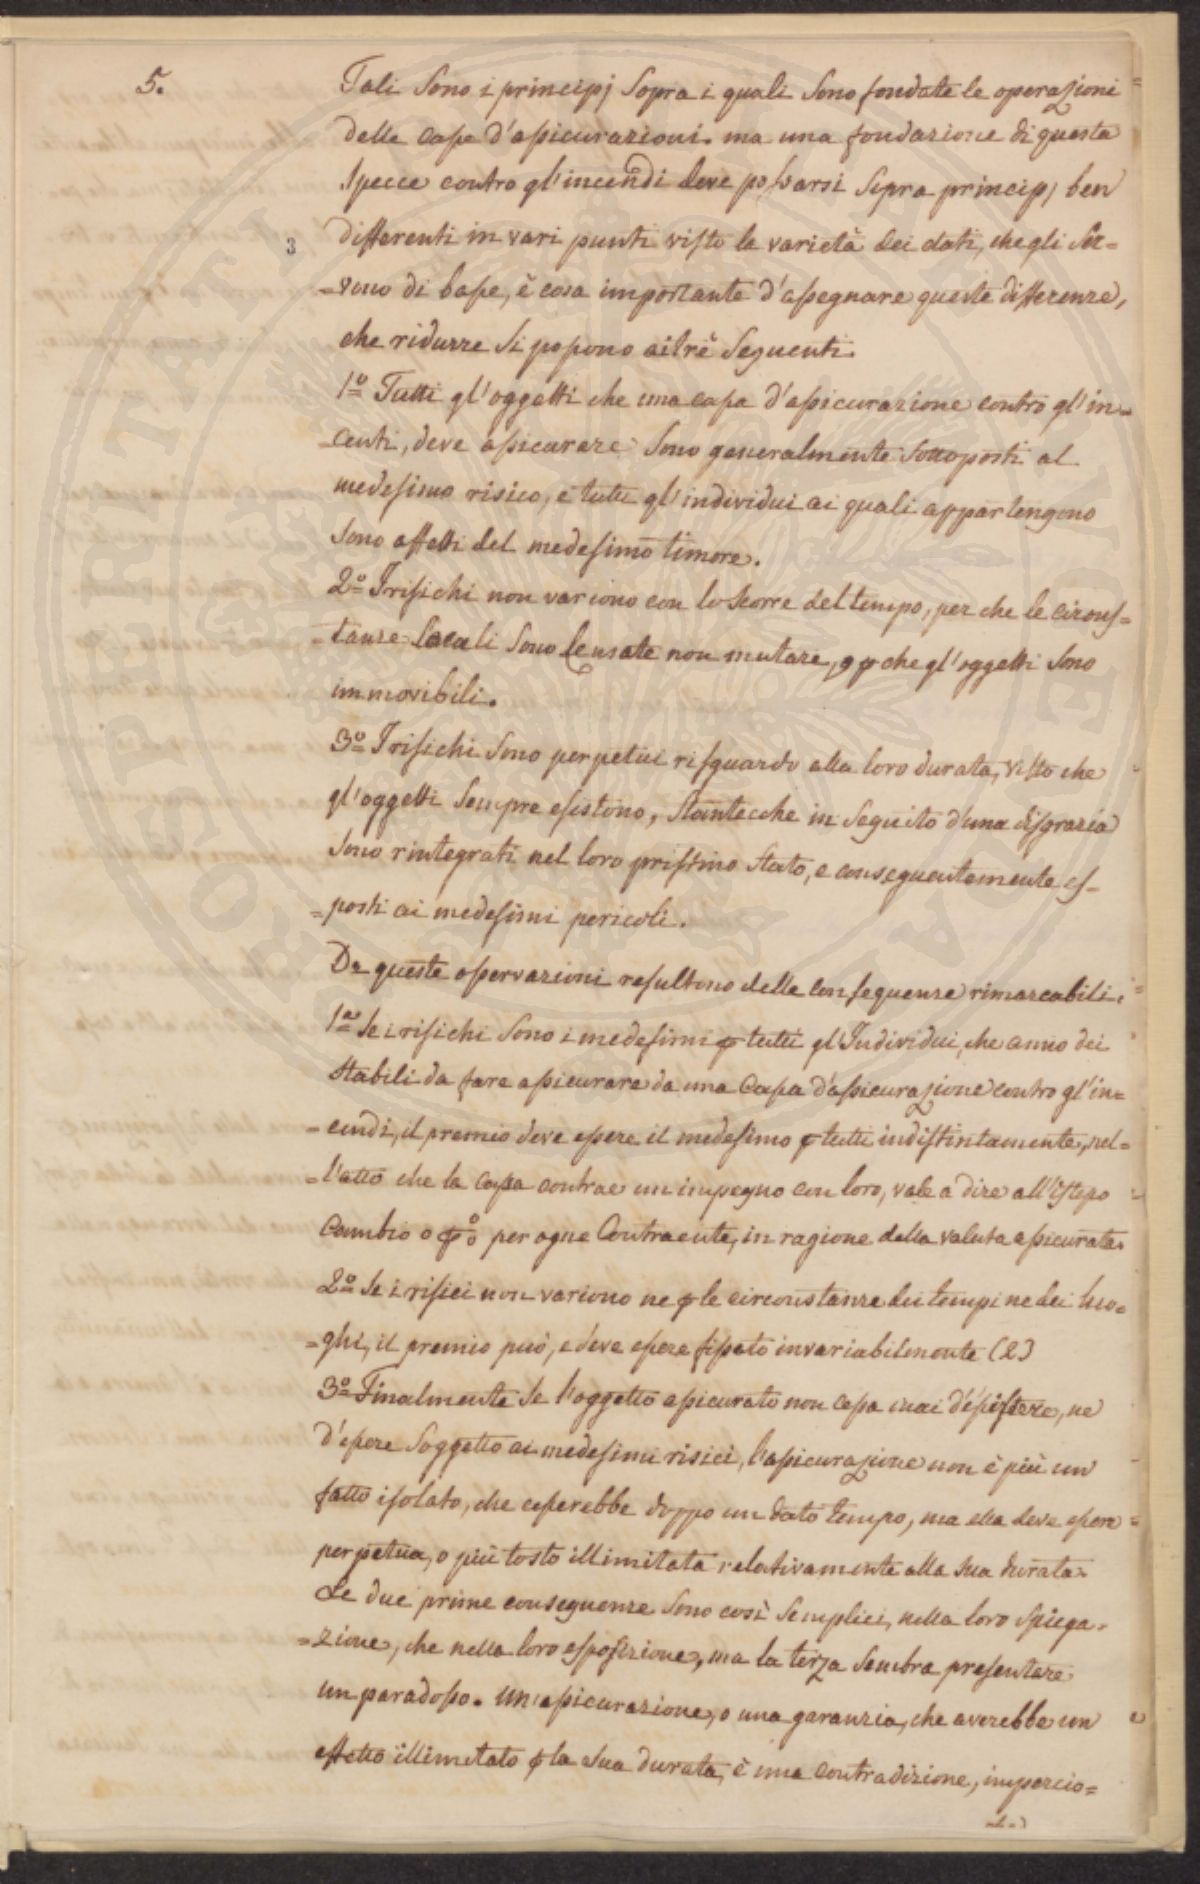 5.
Tali sono i principj sopra i quali sono fondate le operazioni
delle case d'assicurazioni. ma una fondazione di questa
specce contro gl'incendi deve possarsi sopra principj ben
differenti in vari punti visto la varietà dei dati, che gli ser=
3
=vono di base, è cosa importante d'assegnare queste differenze,
che ridurre si possono ai trè seguenti.
1º Tutti gl'oggetti che una casa d'assicurazione contro gl'in=
=centi, deve assicurare sono generalmente sottoposti al
medesimo risico, e tutti gl'individui ai quali appartengono
sono affetti del medesimo timore.
2º I risichi non variono con lo scorre del tempo, per che le circons=
=tanze locali sono censate non mutare, e pche gl'oggetti sono
immovibili.
3º I risichi sono perpetui risguardo alla loro durata, visto che
gl'oggetti sempre esistono, stantecche in seguito d'una disgrazia
sono rintegrati nel loro pristino stato, e conseguentemente es=
=posti ai medesimi pericoli.
Da queste osservazioni resultono delle conseguenze rimarcabili.
1º Se i risichi sono i medesimi p tutti gl'Individui, che anno dei
stabili da fare assicurare da una Casa d'assicurazione contro gl'in=
=cendi, il premio deve essere il medesimo p tutti indistintamente, nel=
=l'atto che la casa contrae un impegno con loro, vale a dire all'istesso
Cambio o p% per ogne Contraente, in ragione della valuta assicurata.
2º Se i risici non variono ne p le circonstanze dei tempi ne dei luo=
=ghi, il premio può, e deve essere fissato invariabilmente (2)
3º Finalmente se l'oggetto assicurato non cessa mai d'esistere, ne
d'essere soggetto ai medesimi risici, l'assicurazione non è più un
fatto isolato, che cesserebbe doppo un dato tempo, ma ella deve essere
perpetua, o più tosto illimitata relativamente alla sua durata.
Le due prime conseguenze sono così semplici, nella loro spiega=
=zione, che nella loro esposizione, ma la terza sembra presentare
un paradosso. Un'assicurazione, o una garanzia, che averebbe un
effetto illimitato p la sua durata, è una contradizione, impercio=